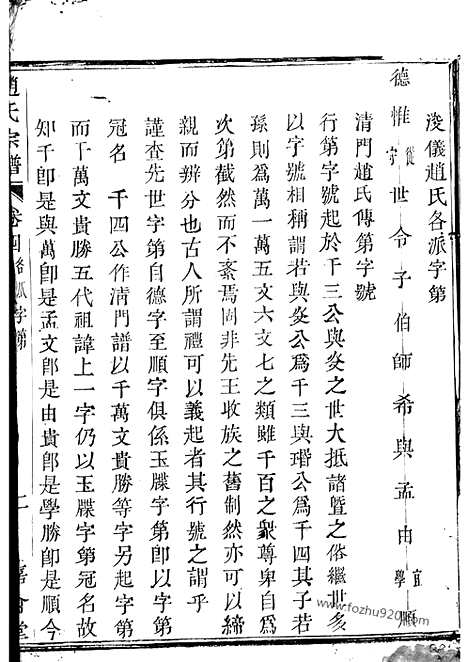 浚儀趙氏各派字第
德惟從守世令子伯師希與孟由宜學順
清門趙氏傳第字號
行第字號起於千三公與㷋之世大抵諸暨之俗繼世多
以字號相稱謂若與㷋公爲千三與瑨公爲千四其子若
孫則爲萬一萬五文六七之類雖千百之衆尊卑自爲
次第截然而不紊焉固非先王收族之舊制然亦可以締
親而辨分也古人所謂禮可以義起者其行號之謂乎
謹查先世字第自德字至順字俱係玉牒字第卽以字第
冠名 千四公作清門譜以千萬文貴勝等字另起字第
而千萬文貴勝五代祖諱上一字仍以玉牒字第冠名故
知千卽是與萬卽是孟文卽是由貴卽是學勝卽是順今
趙氏宗譜 卷四 各派字第 二 嘉會堂
www.fozhu920.com